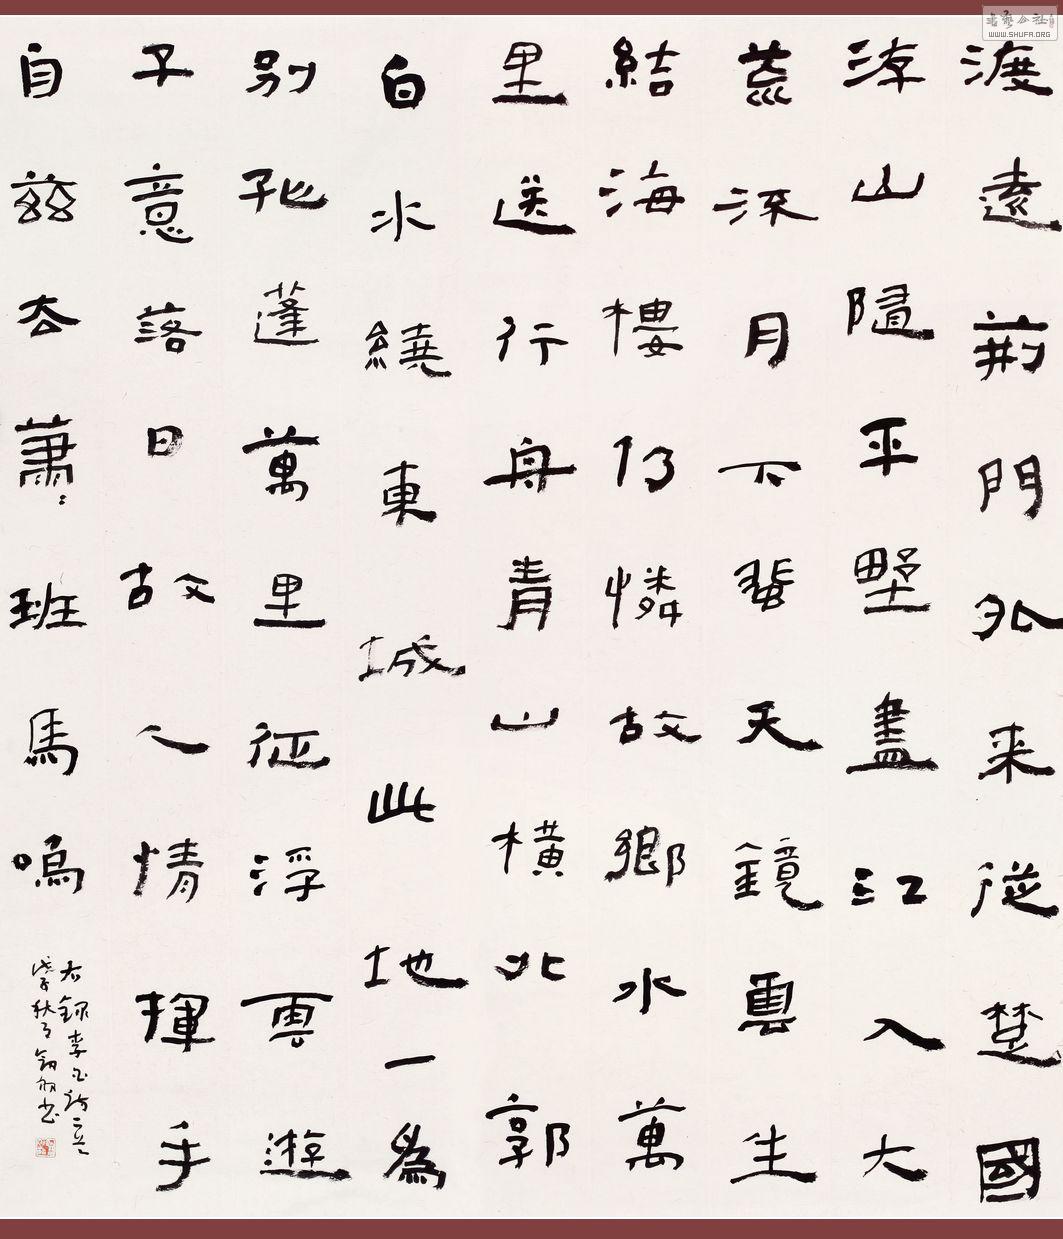 渡遠荊門外来從楚國
游山隨平野盡江入大
荒流月下蜚天鏡雲生
結海樓仍憐故鄉水萬
里送行舟青山橫北郭
白水繞東城此地一為
別孤蓬萬里征浮雲遊
子意落日故人情揮手
自茲去蕭〻班馬鳴
右録李白詩二首
秋月書
書藝公社
WWW.SHUFA.ORG